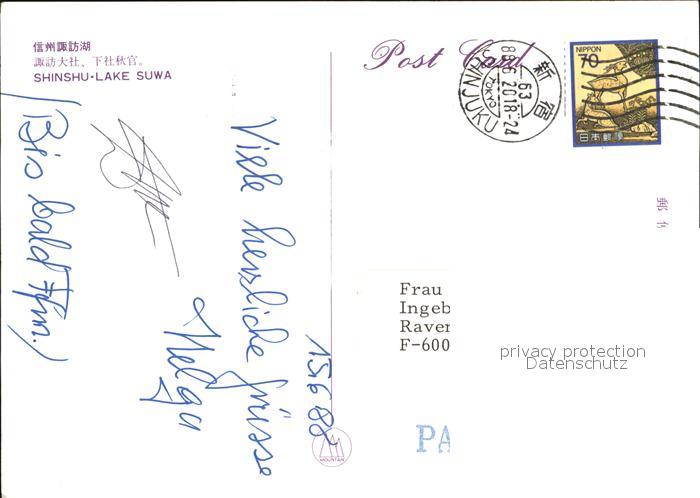 信州諏訪湖
諏訪大社、下社秋宮。
SHINSHU・LAKE SUWA
Post Card
新宿
63
88 6 20 18-24
TOKYO
SHINJUKU
NIPPON
70
日本郵便
15.6.88
Viele herzliche Grüsse
Helga
(Bis bald
郵
Frau
Ingeb
Raver
F-600
privacy protection
Datenschutz
PA
MOUNTAIN